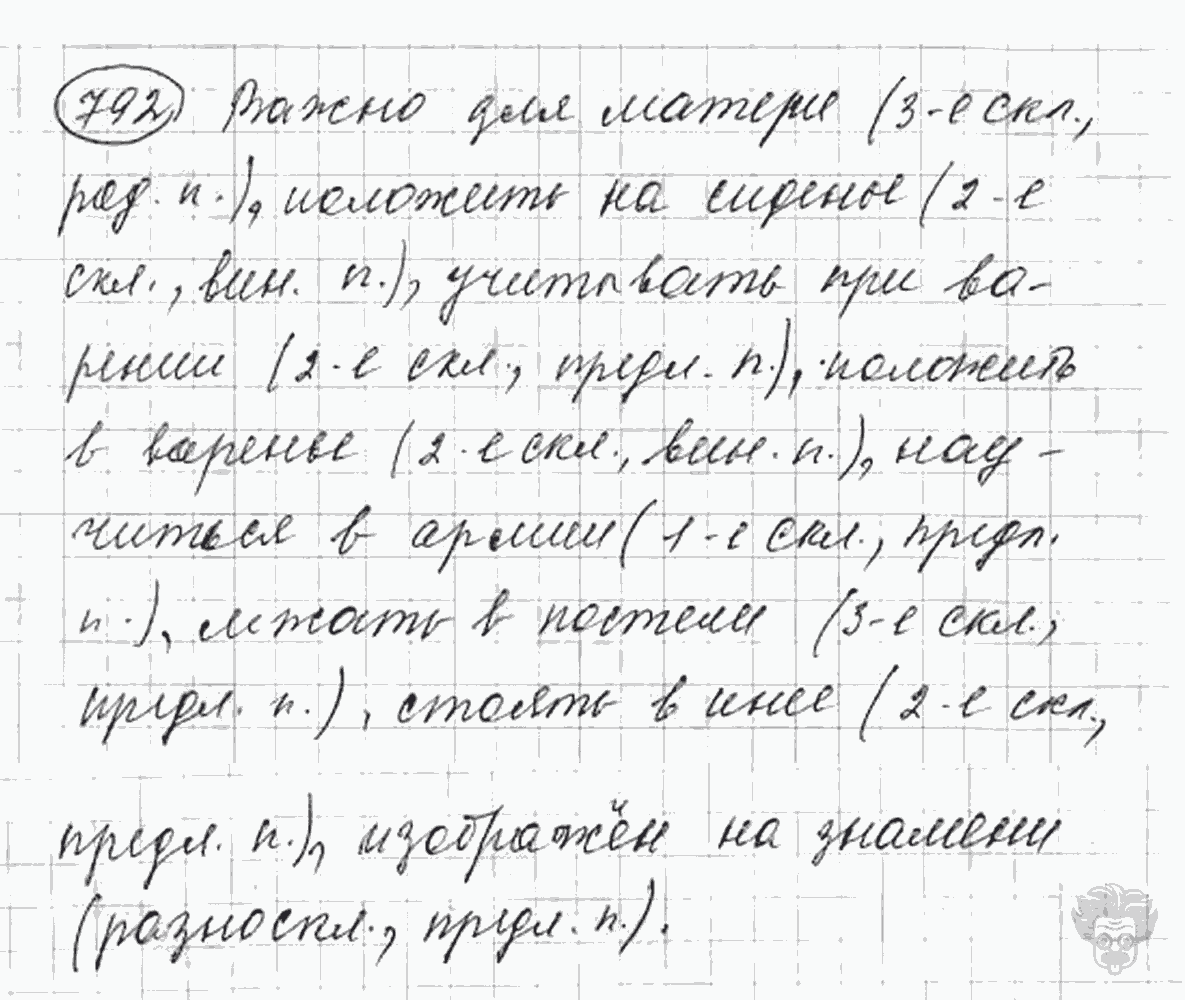 792) Важно для матери (3-е скл.,
род. п.), положить на сиденье (2-е
скл., вин. п.), учитывать при ва-
рении (2-е скл., предл. п.), положить
в варенье (2-е скл., вин. п.), нау-
читься в армии (1-е скл., предл.
п.), лежать в постели (3-е скл.,
предл. п.), стоять в инее (2-е скл.,
предл. п.), изображён на знамени
(разноскл., предл. п.).